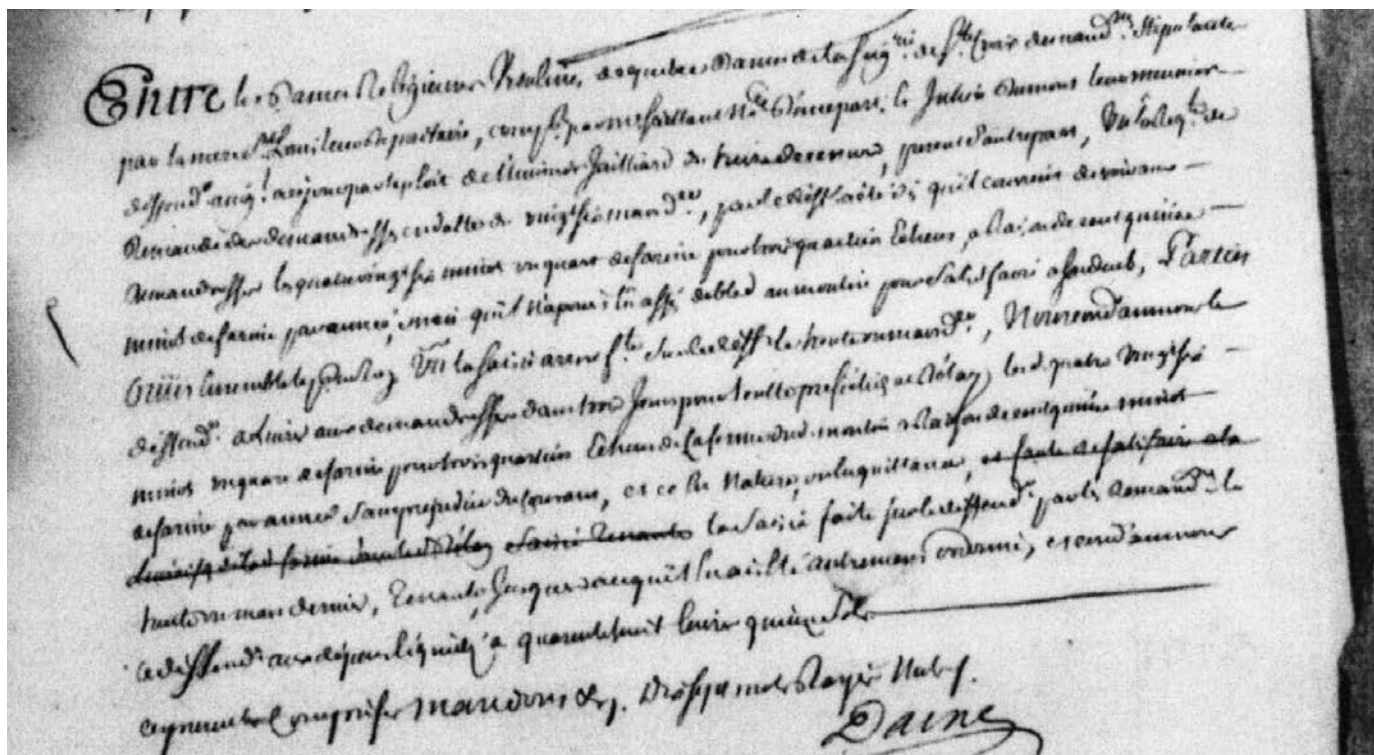 Entre les Dames Religieuses Ursulines de quebec Dames de la Seig.rie de S.te Croix demand.sse Stipulante
par la mere S.t Louis leur Depositaire, comp.te par m.e Saillant N.re d'une part, le Julien Dumont leur meunier
deffend.r assig.é a ce jour par exploit de l'huissier Gailliard du huit de ce mois, present d'autre part, Vu la Req.te de
Demande des demanderesses en datte du vingt six mars d.er, par le deff. a été dit qu'il convenoit devoir aux
demanderesses les quatre vingt six minots un quart de farine pour trois quartiers Echeus, a la raison de cent quinze
minots de farine par année, mais qu'il n'a point eu assé de bled au moulin pour satisfaire a sond. bail, Parties
Ouïes Ensemble Vu la saisie arrest f.te sur led. deff. le trente un mars d.er, Nous condamnons le
deffend.r a Livrer aux demanderesses dans trois Jours pour toutte prefixtion et délay, lesd. quatre vingt six
minots un quart de farine pour trois quartiers Echeus de la ferme dud. moulin a la raison de cent quinze minots
de farine par année Sans prejudice du Courant, et ce en Nature, ou en quittance, et faute de satisfaire a la
Livraison de lad. farine dans led. Délay Saisie Tenante la Saisie faite sur le deffend.r par les Demand.sses le
trente un mars dernier, Tenante, Jusques a ce qu'il en ait été autrement ordonné, et condamnons
le deffend.r aux dépens liquidés a quarente huit livres quinze Sols
ces presentes comprises mandons &c. Daine